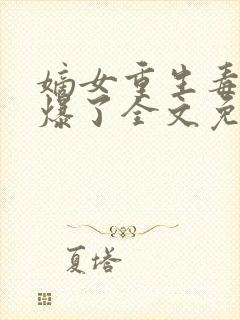 嫡女重生毒
爆了全文免
夏塔